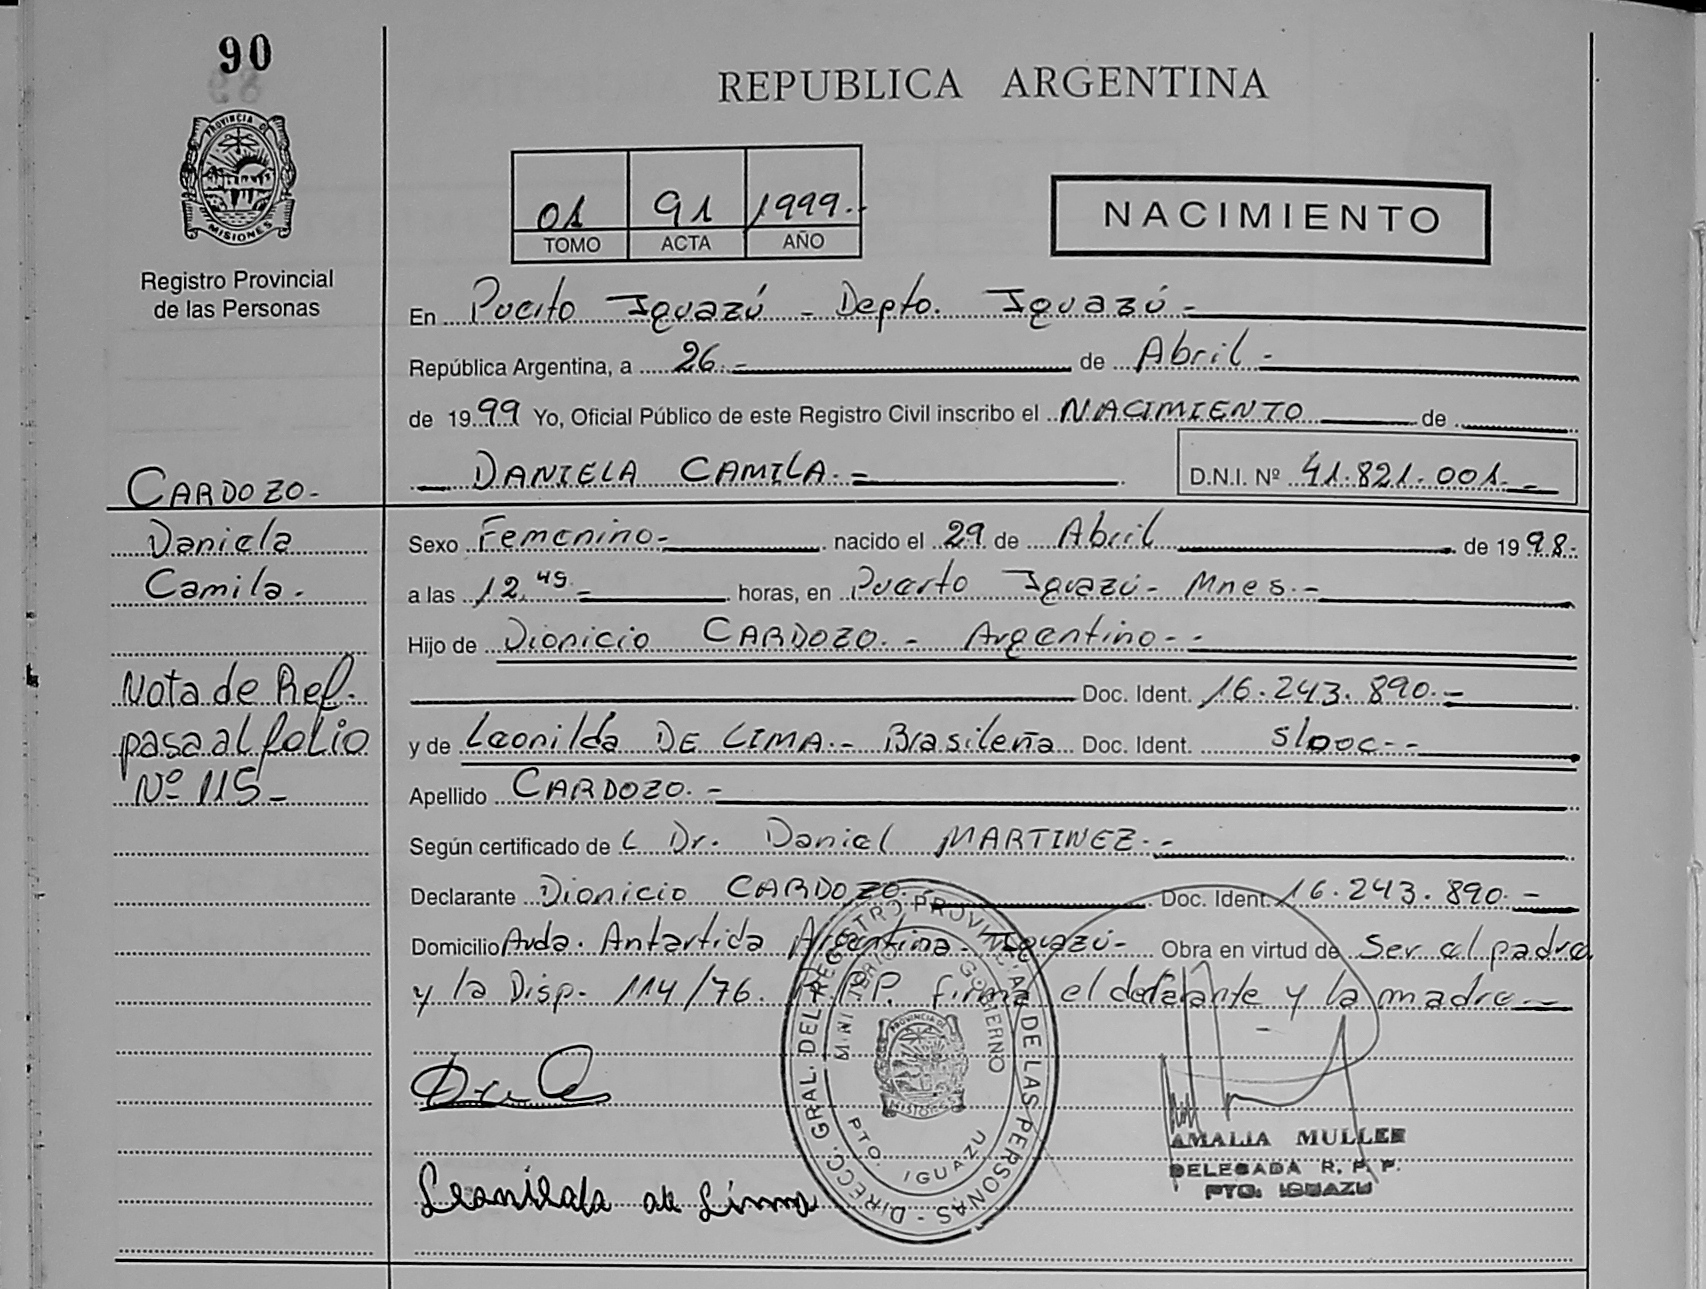 90
REPUBLICA ARGENTINA
PROVINCIA DE
MISIONES
Registro Provincial
de las Personas
01 91 1999.-
TOMO ACTA AÑO
NACIMIENTO
En Puerto Iguazú - Depto. Iguazú -
República Argentina, a 26.- de Abril -
de 1999 Yo, Oficial Público de este Registro Civil inscribo el NACIMIENTO de
DANIELA CAMILA.= D.N.I. Nº 41.821.001.-
CARDOZO-
Daniela
Camila.-
Nota de Ref.
pasa al folio
Nº 115-
Sexo Femenino- nacido el 29 de Abril de 1998.-
a las 12,45.= horas, en Puerto Iguazú- Mnes.-
Hijo de Dionicio CARDOZO.- Argentino.-
Doc. Ident. 16.243.890.-
y de Leonilda DE LIMA.- Brasileña Doc. Ident. slooc--
Apellido CARDOZO.-
Según certificado de L Dr. Daniel MARTINEZ.-
Declarante Dionicio CARDOZO.- Doc. Ident. 16.243.890.-
Domicilio Avda. Antartida Argentina- Iguazú- Obra en virtud de Ser el padre
y la Disp. 114/76. R.P.P. firma el declarante y la madre.-
DIRECC. GRAL. DEL REGISTRO PROVINCIAL DE LAS PERSONAS -
MINISTERIO GOBIERNO
PROVINCIA DE
MISIONES
PTO. IGUAZU
Leonilda de Lima
AMALIA MULLER
DELEGADA R. P. P.
PTO. IGUAZU